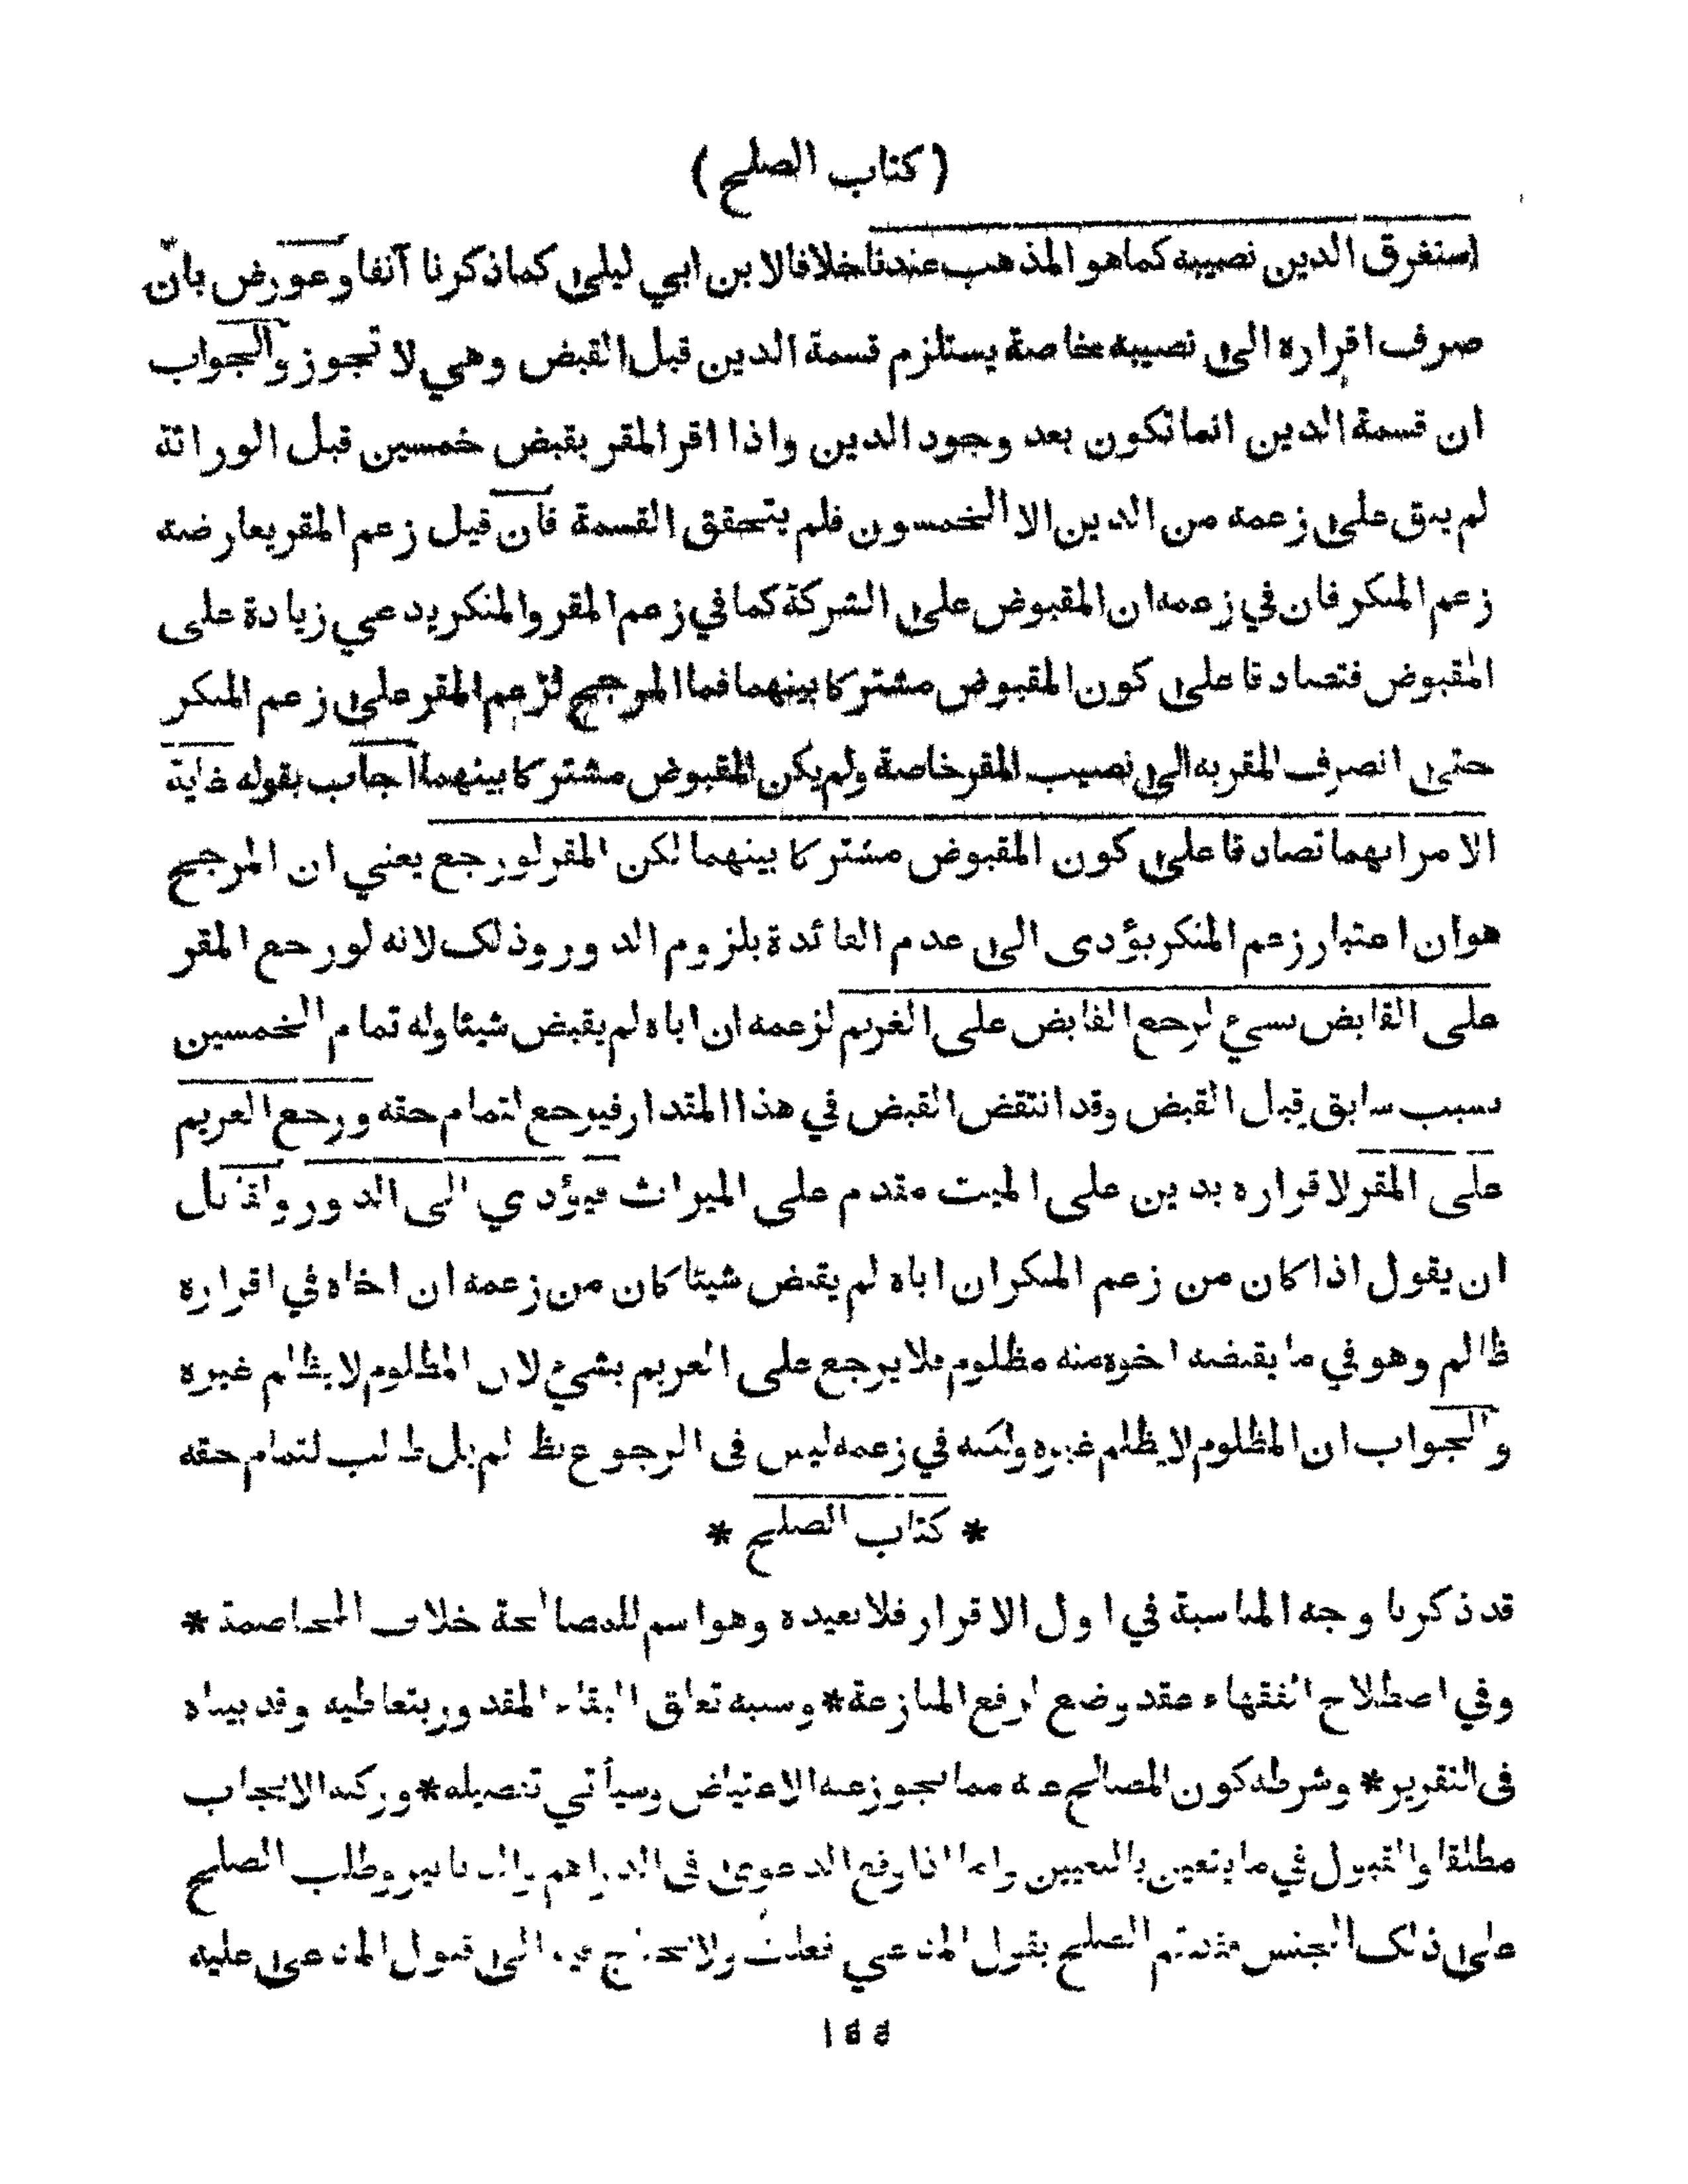 ( كتاب الصلح )
استغرق الدين نصيبه كما هو المذهب عندنا خلافا لابن ابي ليلى كما ذكرنا آنفا وعورض بان
صرف اقراره الى نصيبه خاصة يستلزم قسمة الدين قبل القبض وهي لا تجوز والجواب
ان قسمة الدين انما تكون بعد وجود الدين واذا اقر المقر بقبض خمسين قبل الوراثة
لم يبق على زعمه من الدين الا الخمسون فلم يتحقق القسمة فان قيل زعم المقر يعارضه
زعم المنكر فان في زعمه ان المقبوض على الشركة كما في زعم المقر والمنكر يدعي زيادة على
المقبوض فتصادقا على كون المقبوض مشتركا بينهما فما المرجح لزعم المقر على زعم المنكر
حتى انصرف المقر به الى نصيب المقر خاصة ولم يكن المقبوض مشتركا بينهما اجاب بقوله غاية
الامر انهما تصادقا على كون المقبوض مشتركا بينهما لكن المقر لو رجع يعني ان المرجح
هو ان اعتبار زعم المنكر يؤدى الى عدم الفائدة بلزوم الدور وذلك لانه لو رجع المقر
على القابض بشيء لرجع القابض على الغريم لزعمه ان اباه لم يقبض شيئا وله تمام الخمسين
بسبب سابق قبل القبض وقد انتقض القبض في هذا المقدار فيرجع لتمام حقه ورجع الغريم
على المقر لاقراره بدين على الميت مقدم على الميراث فيؤدي الى الدور ولقائل
ان يقول اذا كان من زعم المنكر ان اباه لم يقبض شيئا كان من زعمه ان اخاه في اقراره
ظالم وهو في ما يقبضه اخوه منه مظلوم فلا يرجع على الغريم بشيء لان المظلوم لا يظلم غيره
والجواب ان المظلوم لا يظلم غيره ولكنه في زعمه ليس فى الرجوع بظالم بل طالب لتمام حقه
* كتاب الصلح *
قد ذكرنا وجه المناسبة في اول الاقرار فلا نعيده وهو اسم للمصالحة خلاف المخاصمة *
وفي اصطلاح الفقهاء عقد وضع لرفع المنازعة * وسببه تعلق البقاء المقدور بتعاطيه وقد بيناه
فى التقرير * وشرطه كون المصالح عنه مما يجوز عنه الاعتياض وسيأتي تفصيله * وركنه الايجاب
مطلقا والقبول في ما يتعين بالتعيين واما اذا وقع الدعوى فى الدراهم والدنانير وطلب الصلح
على ذلك الجنس فقد تم الصلح بقول المدعي فعلت ولا يحتاج فيه الى قبول المدعى عليه